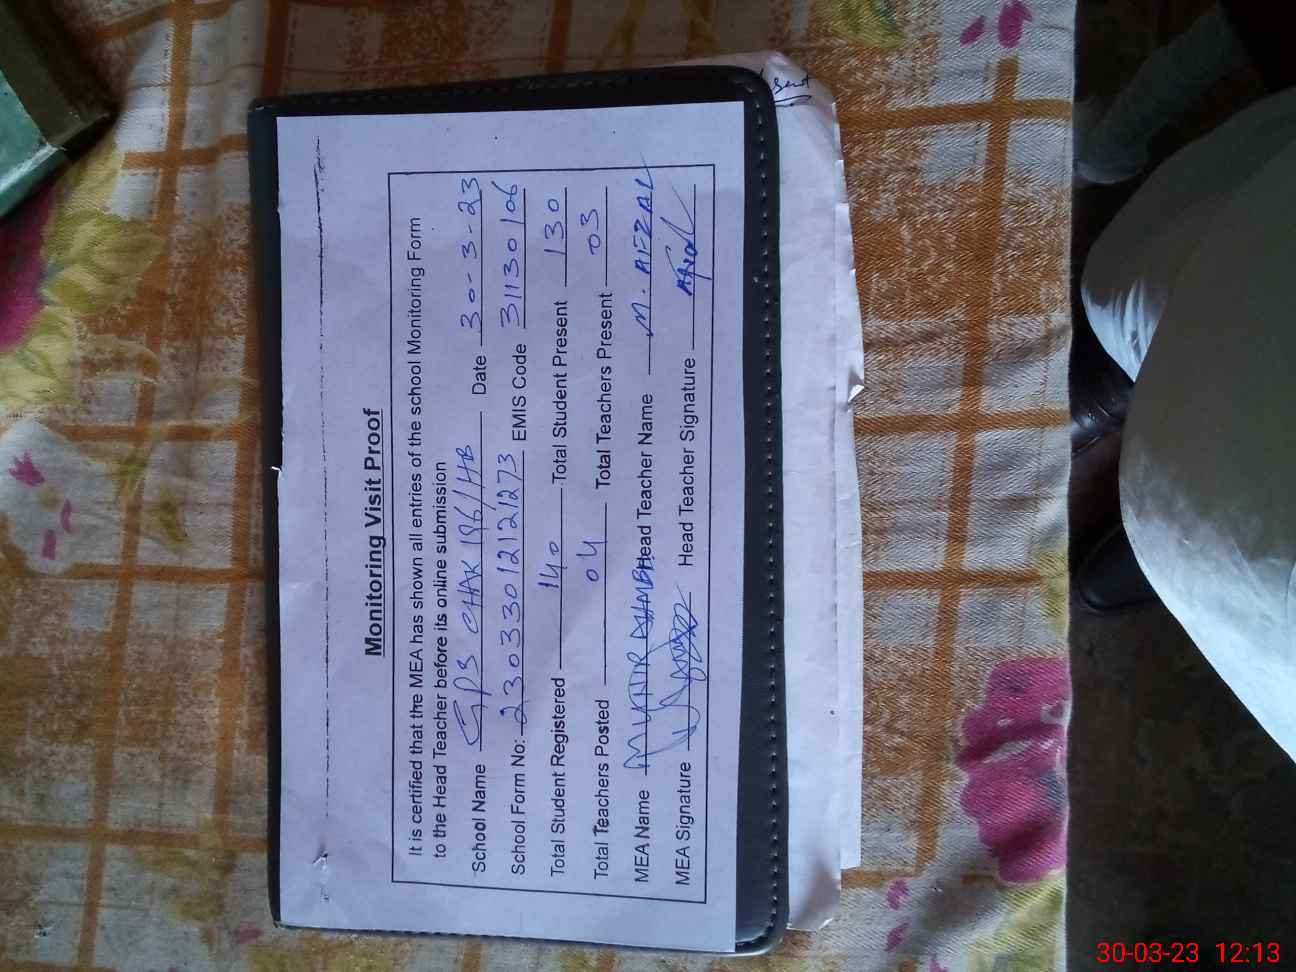 Monitoring Visit Proof
It is certified that the MEA has shown all entries of the school Monitoring Form
to the Head Teacher before its online submission
School Name GPS CHAK 196/HB Date 30-3-23
School Form No: 23033012121273 EMIS Code 31130106
Total Student Registered 140 Total Student Present 130
Total Teachers Posted 04 Total Teachers Present 03
MEA Name Head Teacher Name M. AFZAL
MEA Signature Head Teacher Signature Afzal
30-03-23 12:13